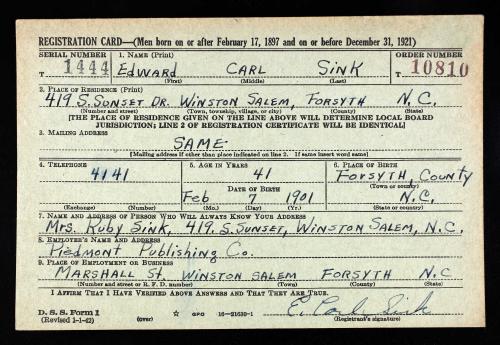 REGISTRATION CARD—(Men born on or after February 17, 1897 and on or before December 31, 1921)
SERIAL NUMBER 1. NAME (Print) ORDER NUMBER
T 1444 EDWARD CARL SINK T 10810
(First) (Middle) (Last)
2. PLACE OF RESIDENCE (Print)
419 S. SUNSET DR. WINSTON SALEM, FORSYTH N.C.
(Number and street) (Town, township, village, or city) (County) (State)
[THE PLACE OF RESIDENCE GIVEN ON THE LINE ABOVE WILL DETERMINE LOCAL BOARD
JURISDICTION; LINE 2 OF REGISTRATION CERTIFICATE WILL BE IDENTICAL]
3. MAILING ADDRESS
SAME
[Mailing address if other than place indicated on line 2. If same insert word same]
4. TELEPHONE 5. AGE IN YEARS 6. PLACE OF BIRTH
4141 41 FORSYTH, COUNTY
DATE OF BIRTH (Town or county)
Feb 7 1901 N.C.
(Exchange) (Number) (Mo.) (Day) (Yr.) (State or country)
7. NAME AND ADDRESS OF PERSON WHO WILL ALWAYS KNOW YOUR ADDRESS
Mrs. Ruby Sink, 419. S. Sunset, Winston Salem, N.C.
8. EMPLOYER'S NAME AND ADDRESS
Piedmont Publishing Co.
9. PLACE OF EMPLOYMENT OR BUSINESS
MARSHALL St. WINSTON SALEM FORSYTH N.C
(Number and street or R. F. D. number) (Town) (County) (State)
I AFFIRM THAT I HAVE VERIFIED ABOVE ANSWERS AND THAT THEY ARE TRUE.
E. Carl Sink
D. S. S. Form 1
(Revised 1-1-42) (over) ☆ GPO 16—21630-1 (Registrant's signature)